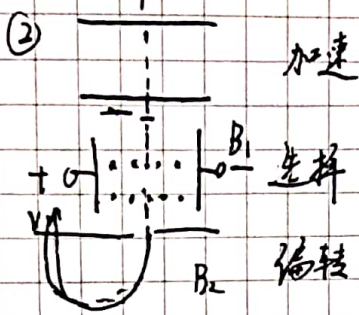 ②
加速
B₁
+ 选择
B₂ 偏转